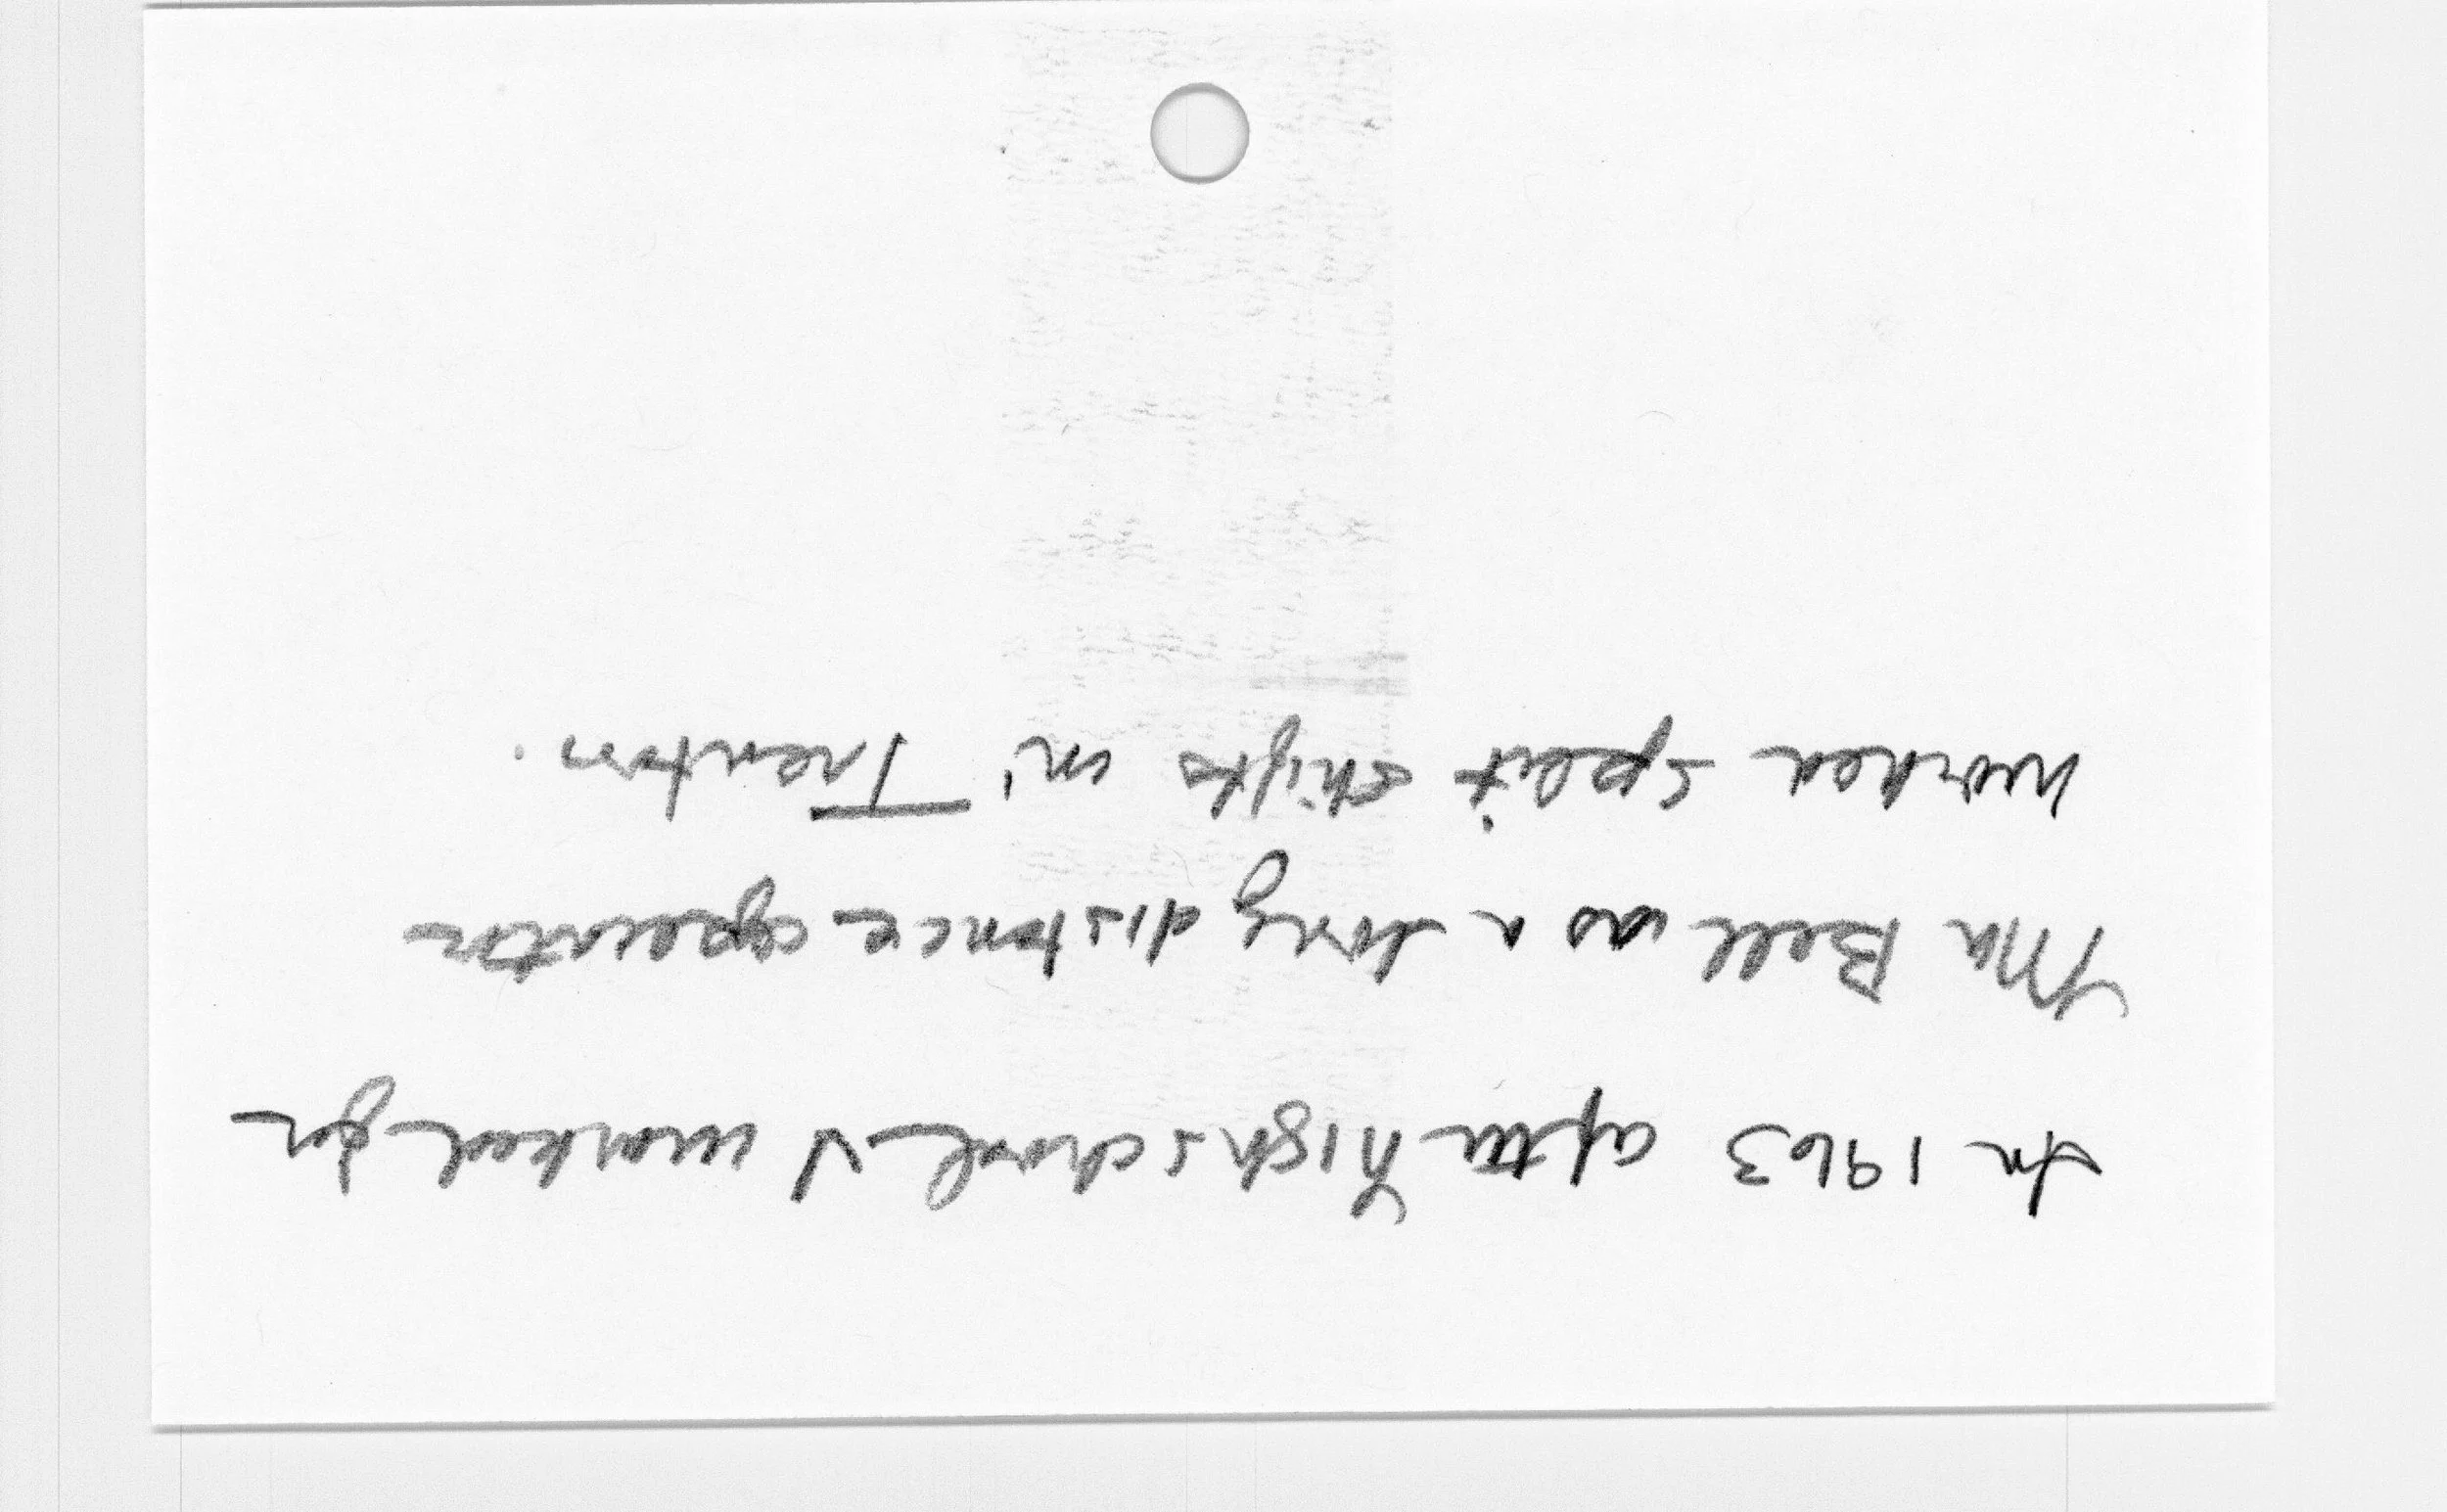 In 1963 after high school I worked for
Ma Bell as a long distance operator
worked split shifts in Trenton.